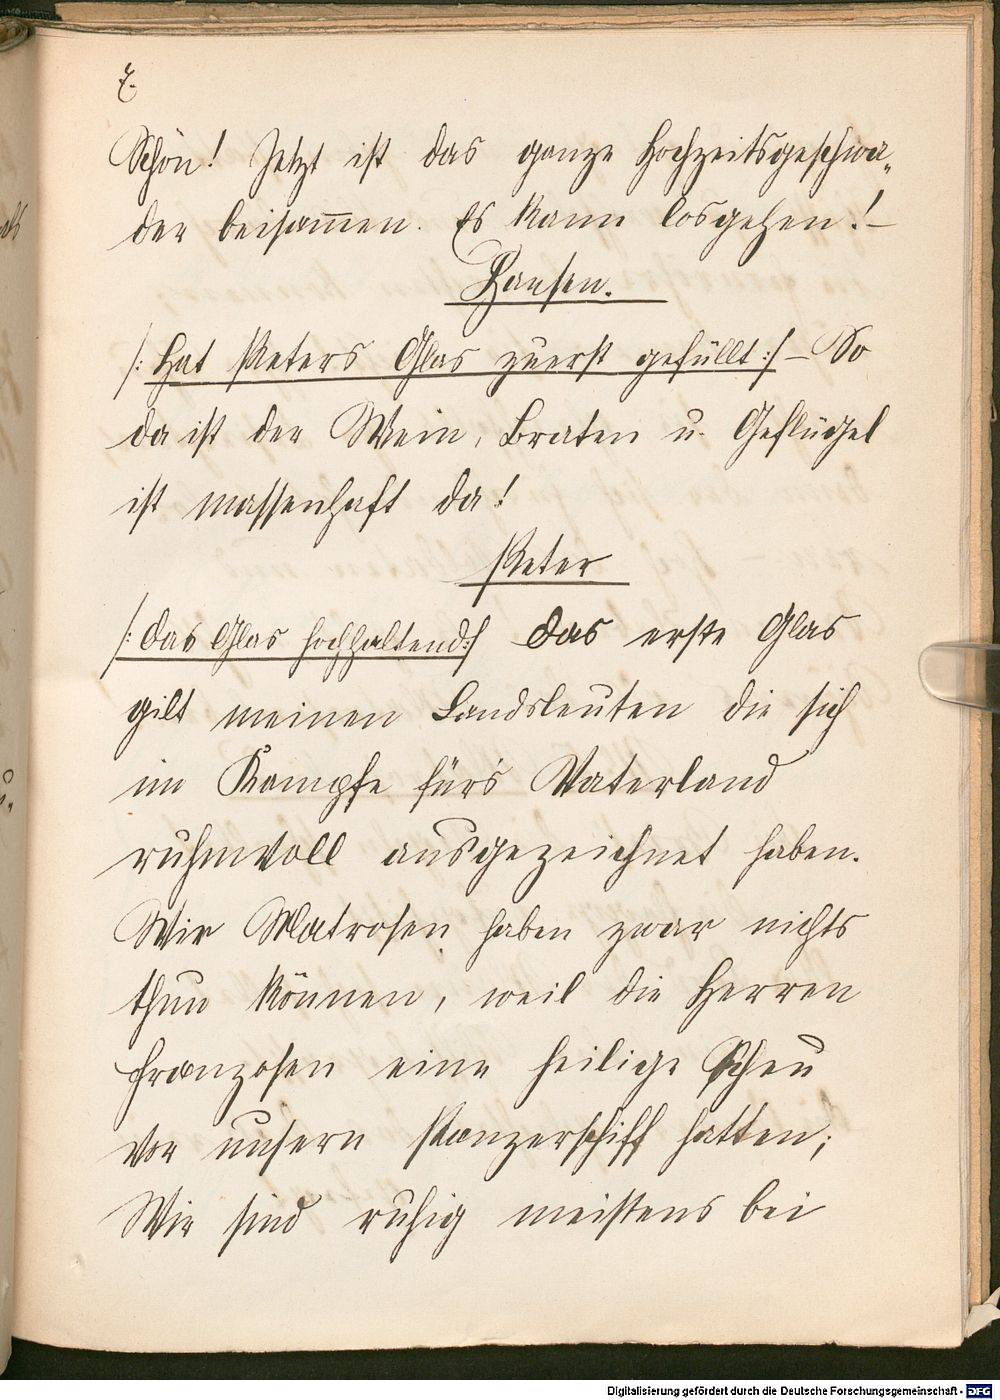 7.
Schön! Jetzt ist das ganze Hochzeitsgeschwa„
der beisam̅en. Es kann losgehen! –
Hansen.
/: Hat Peters Glas zuerst gefüllt :/ – So
da ist der Wein, Braten u. Geflügel
ist massenhaft da!
Peter
/: das Glas hochhaltend :/ Das erste Glas
gilt meinen Landsleuten die sich
im Kampfe für's Vaterland
ruhmvoll ausgezeichnet haben.
Wir Matrosen haben zwar nichts
thun können, weil die Herren
Franzosen eine heilige Scheu
vor unsern Panzerschiff hatten;
Wir sind ruhig meistens bei
Digitalisierung gefördert durch die Deutsche Forschungsgemeinschaft - DFG